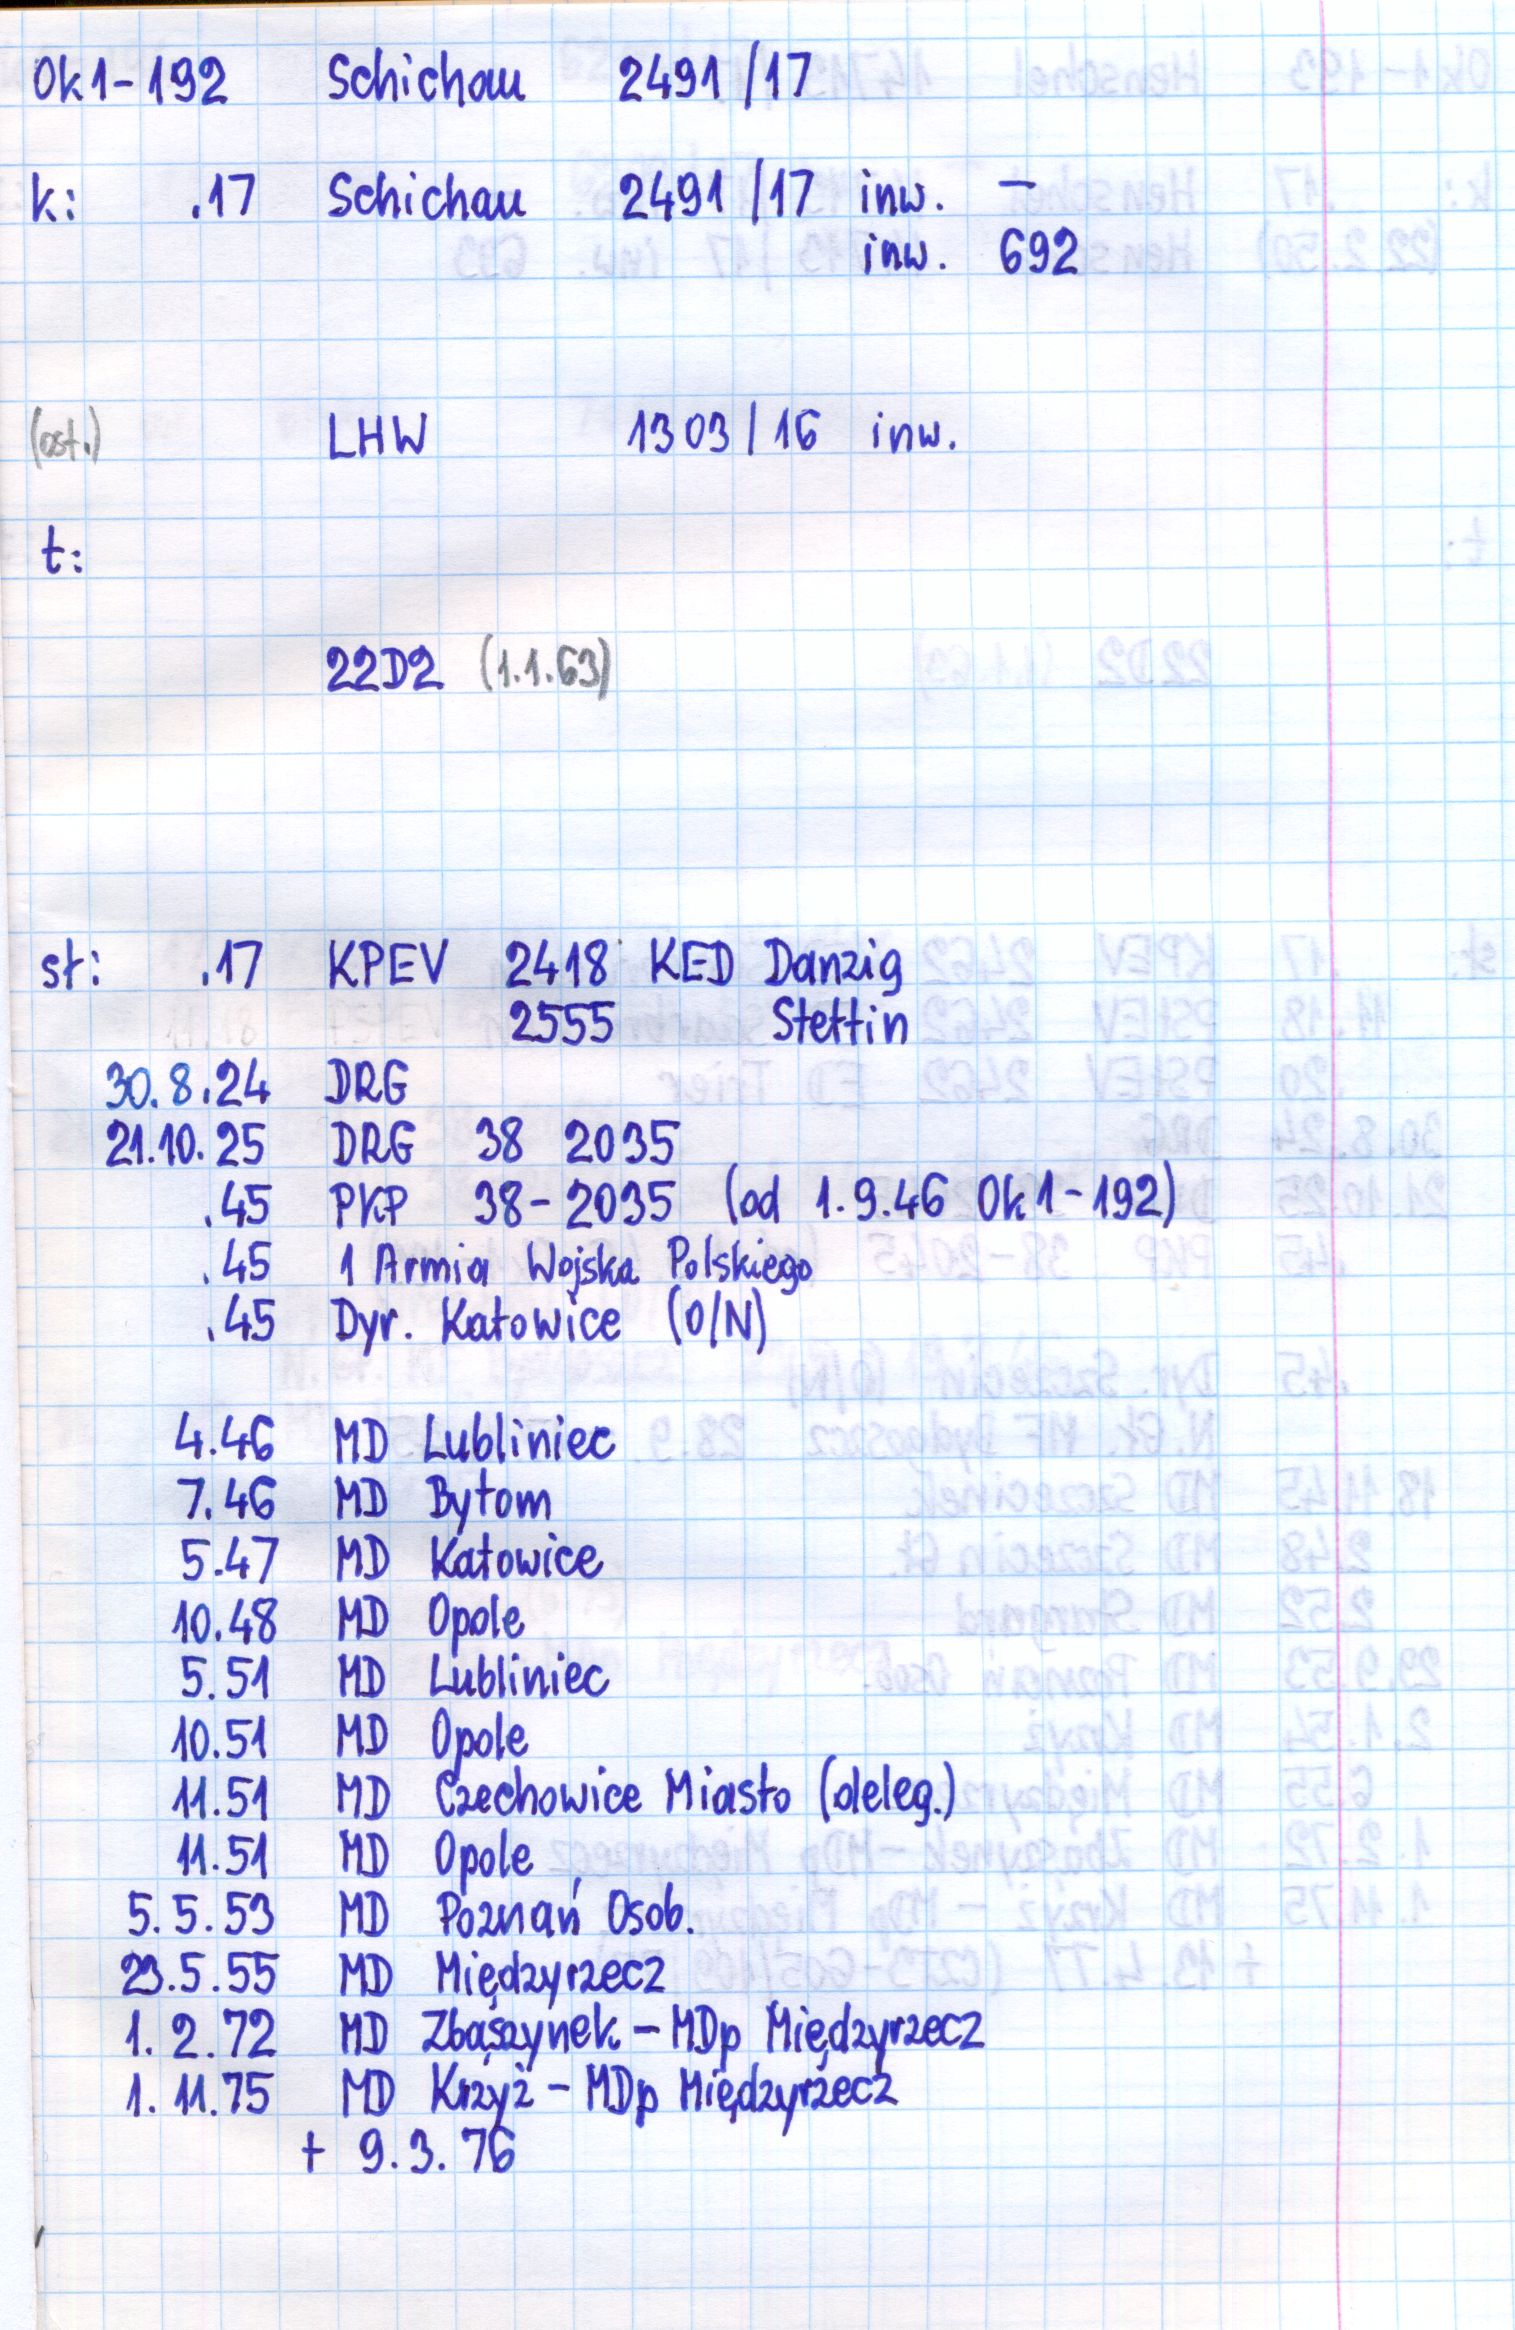 Ok1-192 Schichau 2491/17
k: .17 Schichau 2491/17 inw. —
inw. 692
(ost.) LHW 1303/16 inw.
t:
22D2 (1.1.63)
st: .17 KPEV 2418 KED Danzig
2555 Stettin
30.8.24 DRG
21.10.25 DRG 38 2035
.45 PKP 38-2035 (od 1.9.46 Ok1-192)
.45 1 Armia Wojska Polskiego
.45 Dyr. Katowice (O/N)
4.46 MD Lubliniec
7.46 MD Bytom
5.47 MD Katowice
10.48 MD Opole
5.51 MD Lubliniec
10.51 MD Opole
11.51 MD Czechowice Miasto (deleg.)
11.51 MD Opole
5.5.53 MD Poznań Osob.
23.5.55 MD Międzyrzecz
1.2.72 MD Zbąszynek - MDp Międzyrzecz
1.11.75 MD Krzyż - MDp Międzyrzecz
+ 9.3.76